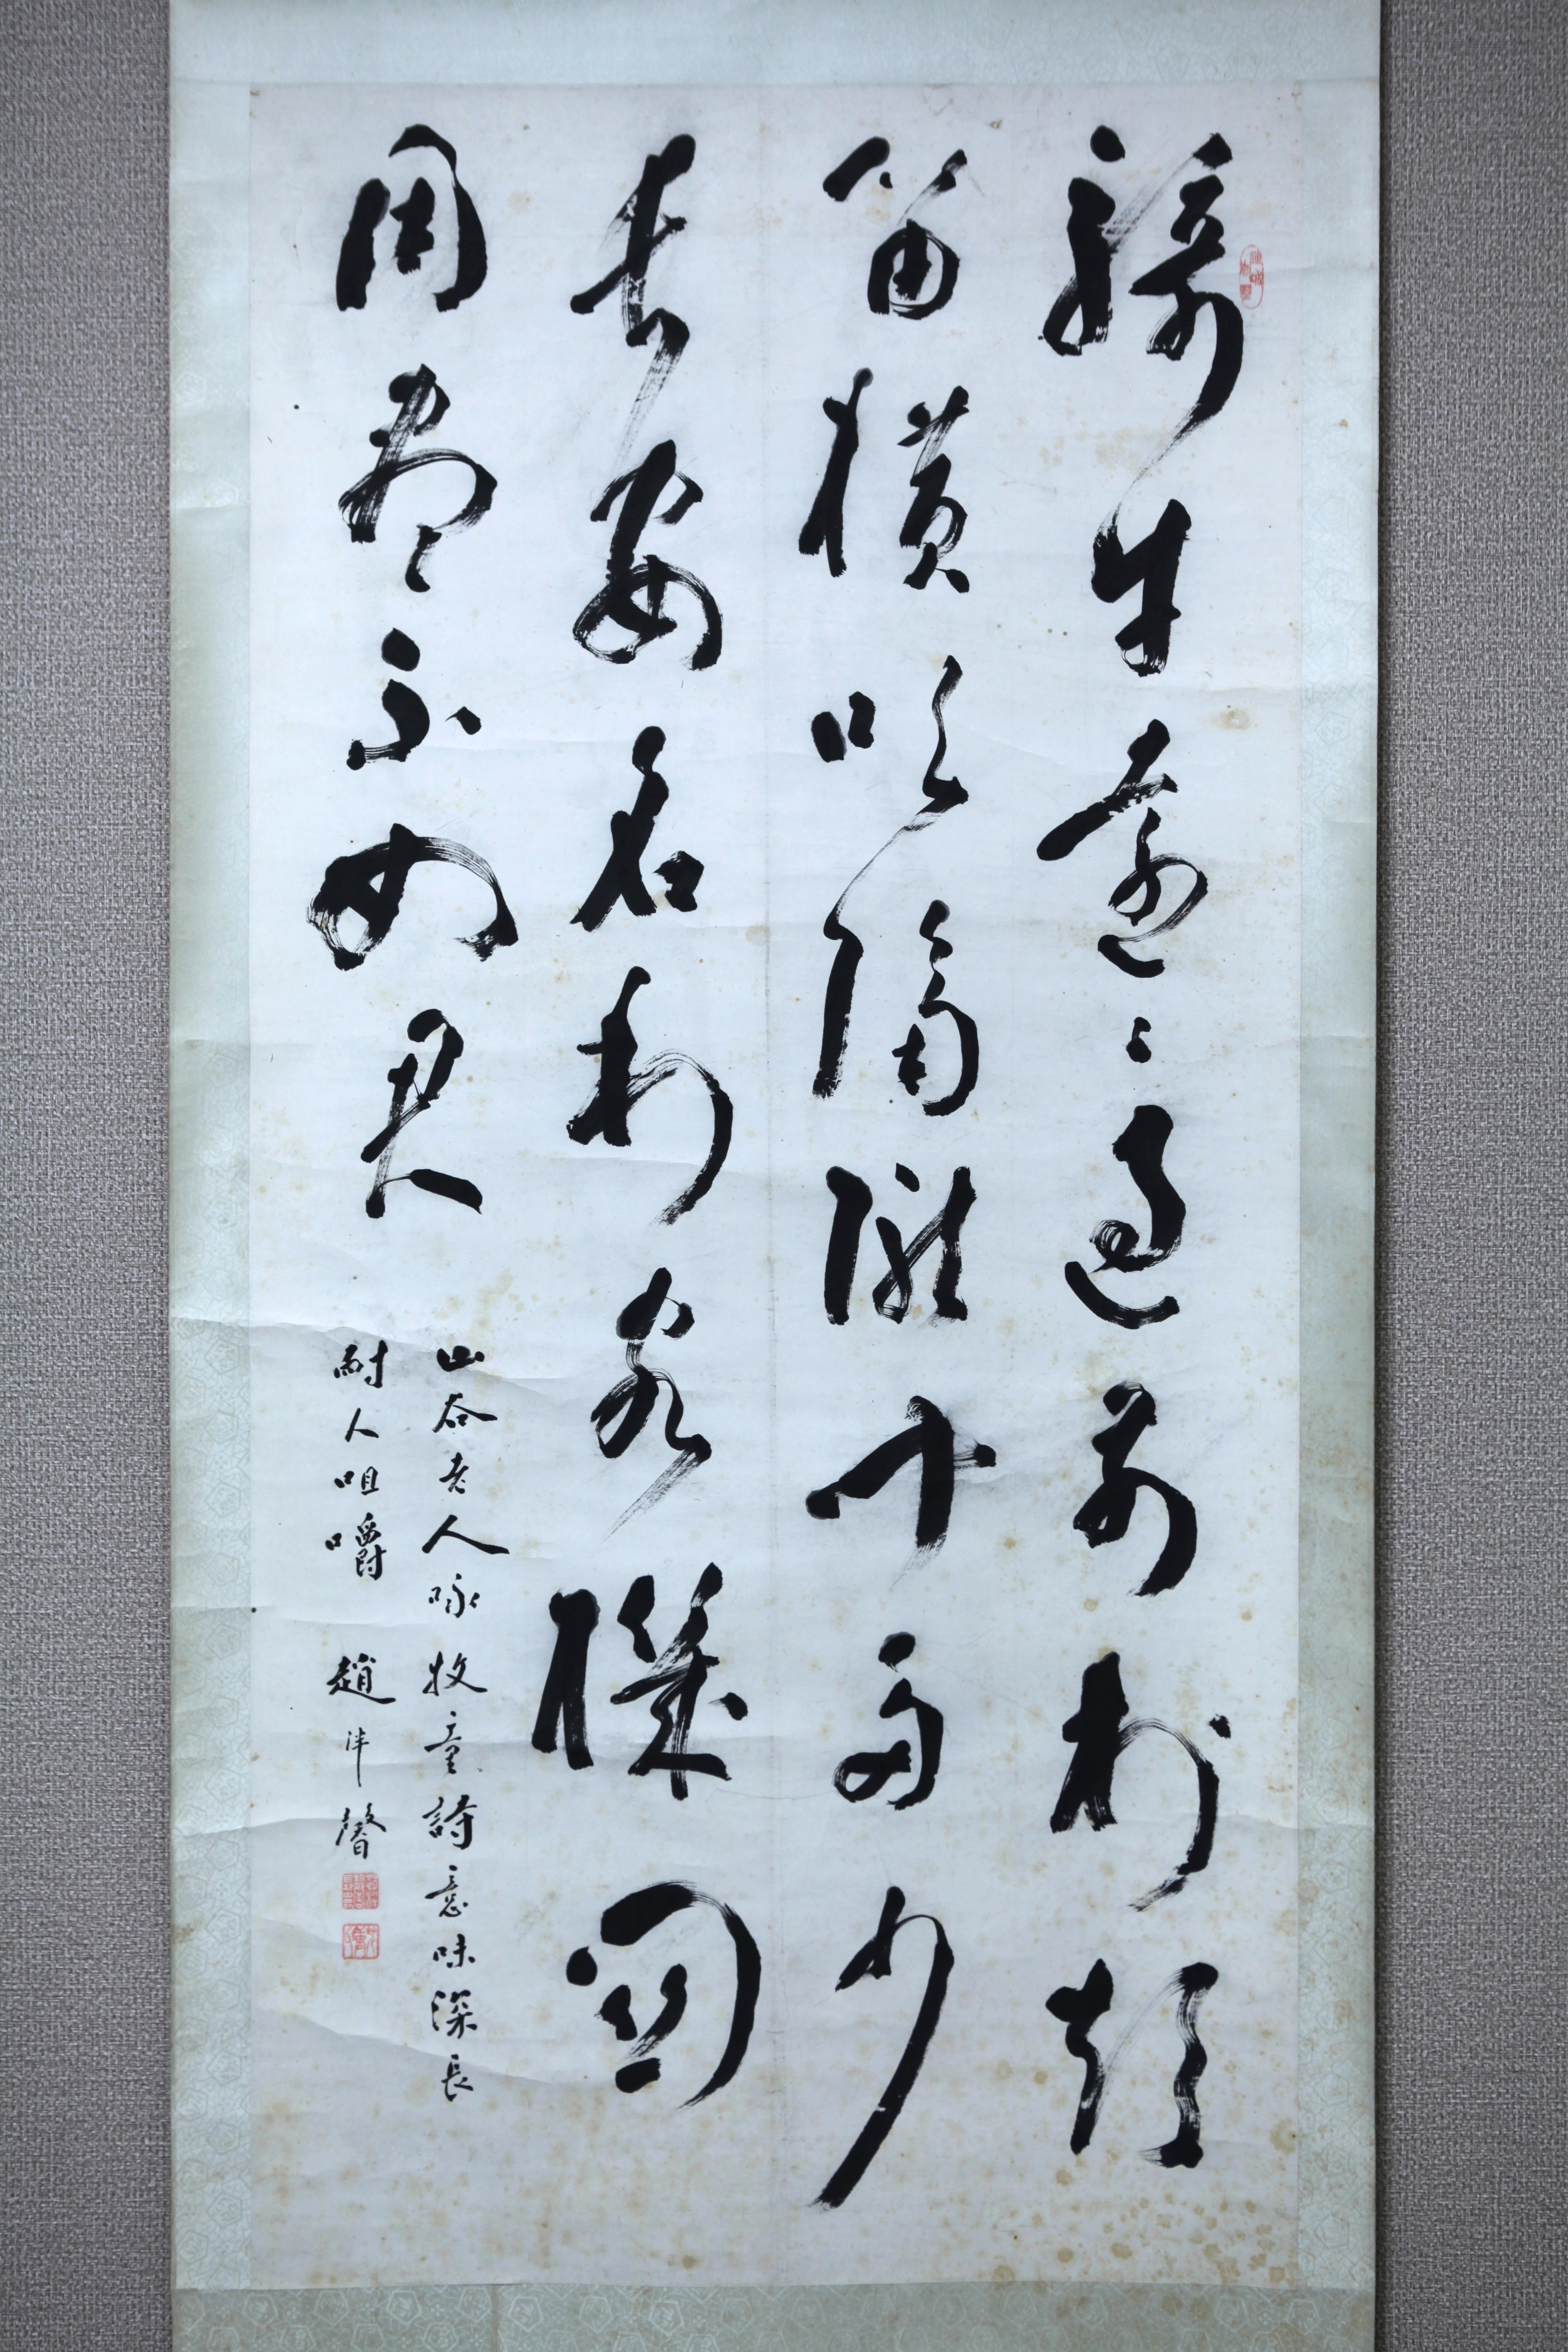 騎牛遠〻過前村短
笛横吹隔隴聞多少
長安名利客機関用盡不如君
山谷老人咏牧童詩意味深長
耐人咀嚼 趙泮馨